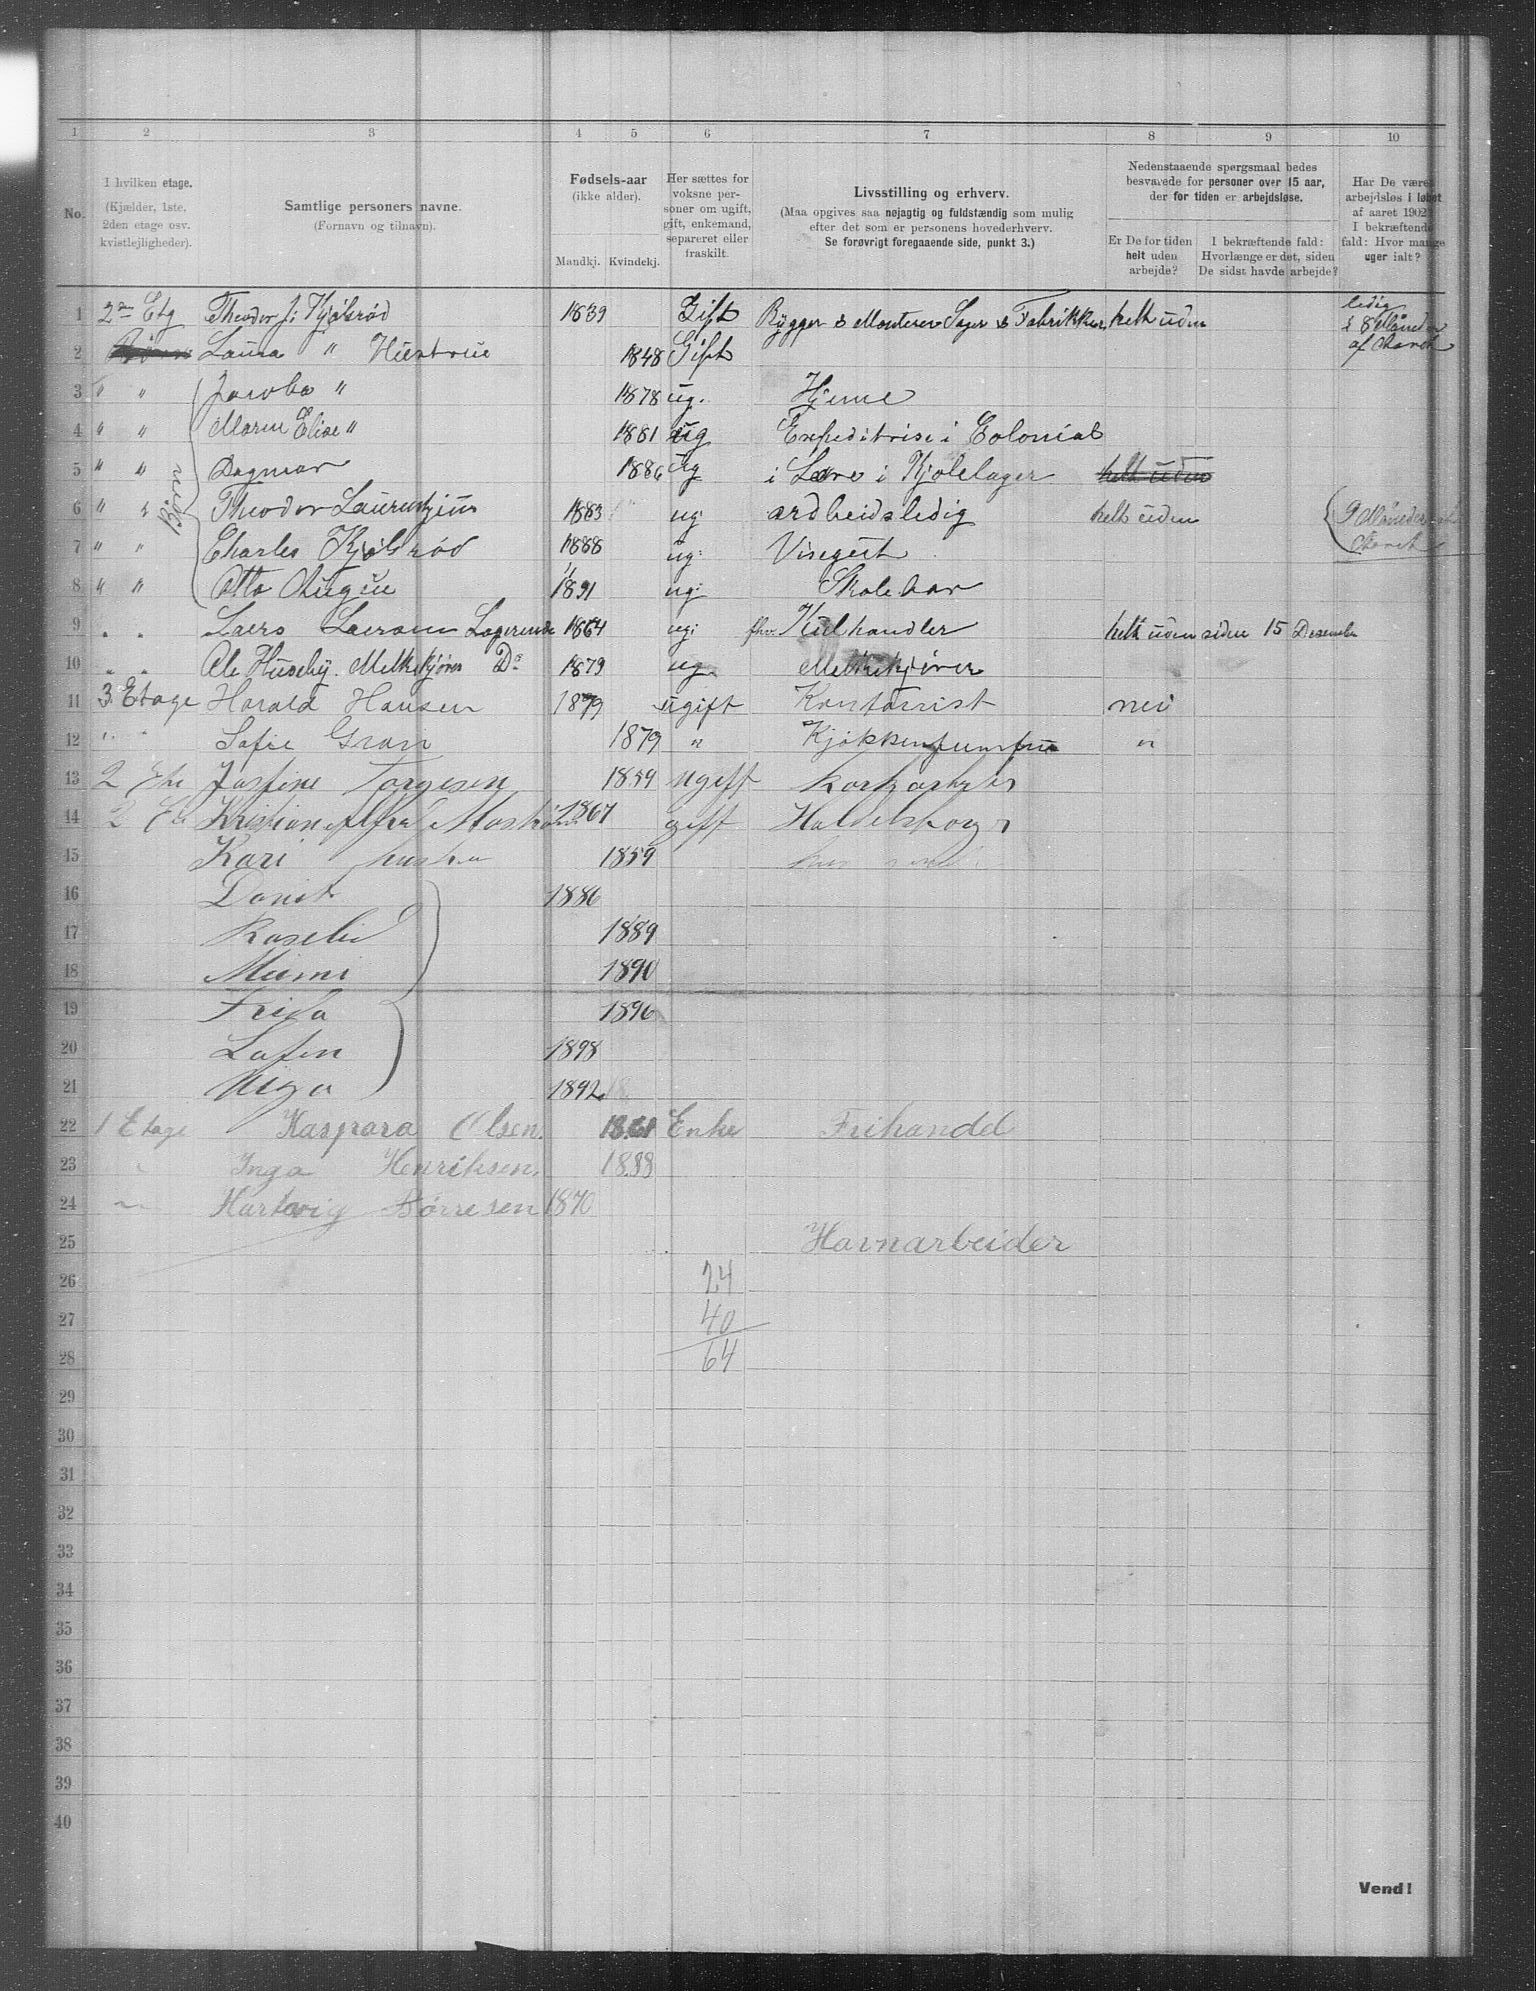 1 2 3 4 5 6 7 8 9 10
No.
I hvilken etage.
(Kjælder, 1ste,
2den etage osv.
kvistlejligheder).
Samtlige personers navne.
(Fornavn og tilnavn).
Fødsels-aar
(ikke alder).
Mandkj. Kvindekj.
Her sættes for
voksne per-
soner om ugift,
gift, enkemand,
separeret eller
fraskilt.
Livsstilling og erhverv.
(Maa opgives saa nøjagtig og fuldstændig som mulig
efter det som er personens hovederhverv.
Se forøvrigt foregaaende side, punkt 3.)
Nedenstaaende spørgsmaal bedes
besvarede for personer over 15 aar,
der for tiden er arbejdsløse.
Er De for tiden
helt uden
arbejde?
I bekræftende fald:
Hvorlænge er det, siden
De sidst havde arbejde?
Har De været
arbejdsløs i løbet
af aaret 1902?
I bekræftende
fald: Hvor mange
uger ialt?
1 2den Etg Theodor J: Kjølsrød 1839 Gift Bygger & Monterer Sager & Fabrikker helt uden ledig i 8 Måneder af Aaret
2 Laura " Hüstrue 1848 Gift
3 " " Jacoba " 1878 ug. Hjeme
4 " " Maren Elise " 1881 ug Expeditrise i Colonial
5 " " Dagmar 1886 ug i Lære i Kjolelager helt uden
Børn
6 " " Theodor Laurentzius 1883 ug ardbeidsledig helt uden 9 Måneder Aaret
7 " " Charles Kjølsrød 1888 ug: Visegut
8 " " Otto August 1891 ug: Skolebar
9 " " Laers Laersen Logerende 1864 ug: fhv. Kulhandler helt uden siden 15 Desember
10 " " Ole Huseby. Melkekjører Do 1879 ug Melkekjører
11 3. Etage Harald Hansen 1879 ugift Kontorrist nei
12 " " Sofie Gran 1879 " Kjøkkenjumfru "
13 2 Etg Josfine Torgesen 1859 ugift
14 2 Kristian 1867 gift
15 Kari hustru 1859
16 1886
17 1889
18 Mimmi 1890
19 Frida 1896
20 1898
21 1892
22 1 Etage Kaspara Olsen. 1861 Enke Frihandel
23 " Inga Henriksen. 1888
24 " Hartvig Børresen 1870
25 Havnarbeider
26 24
27 40
28 64
29
30
31
32
33
34
35
36
37
38
39
40
Vend!